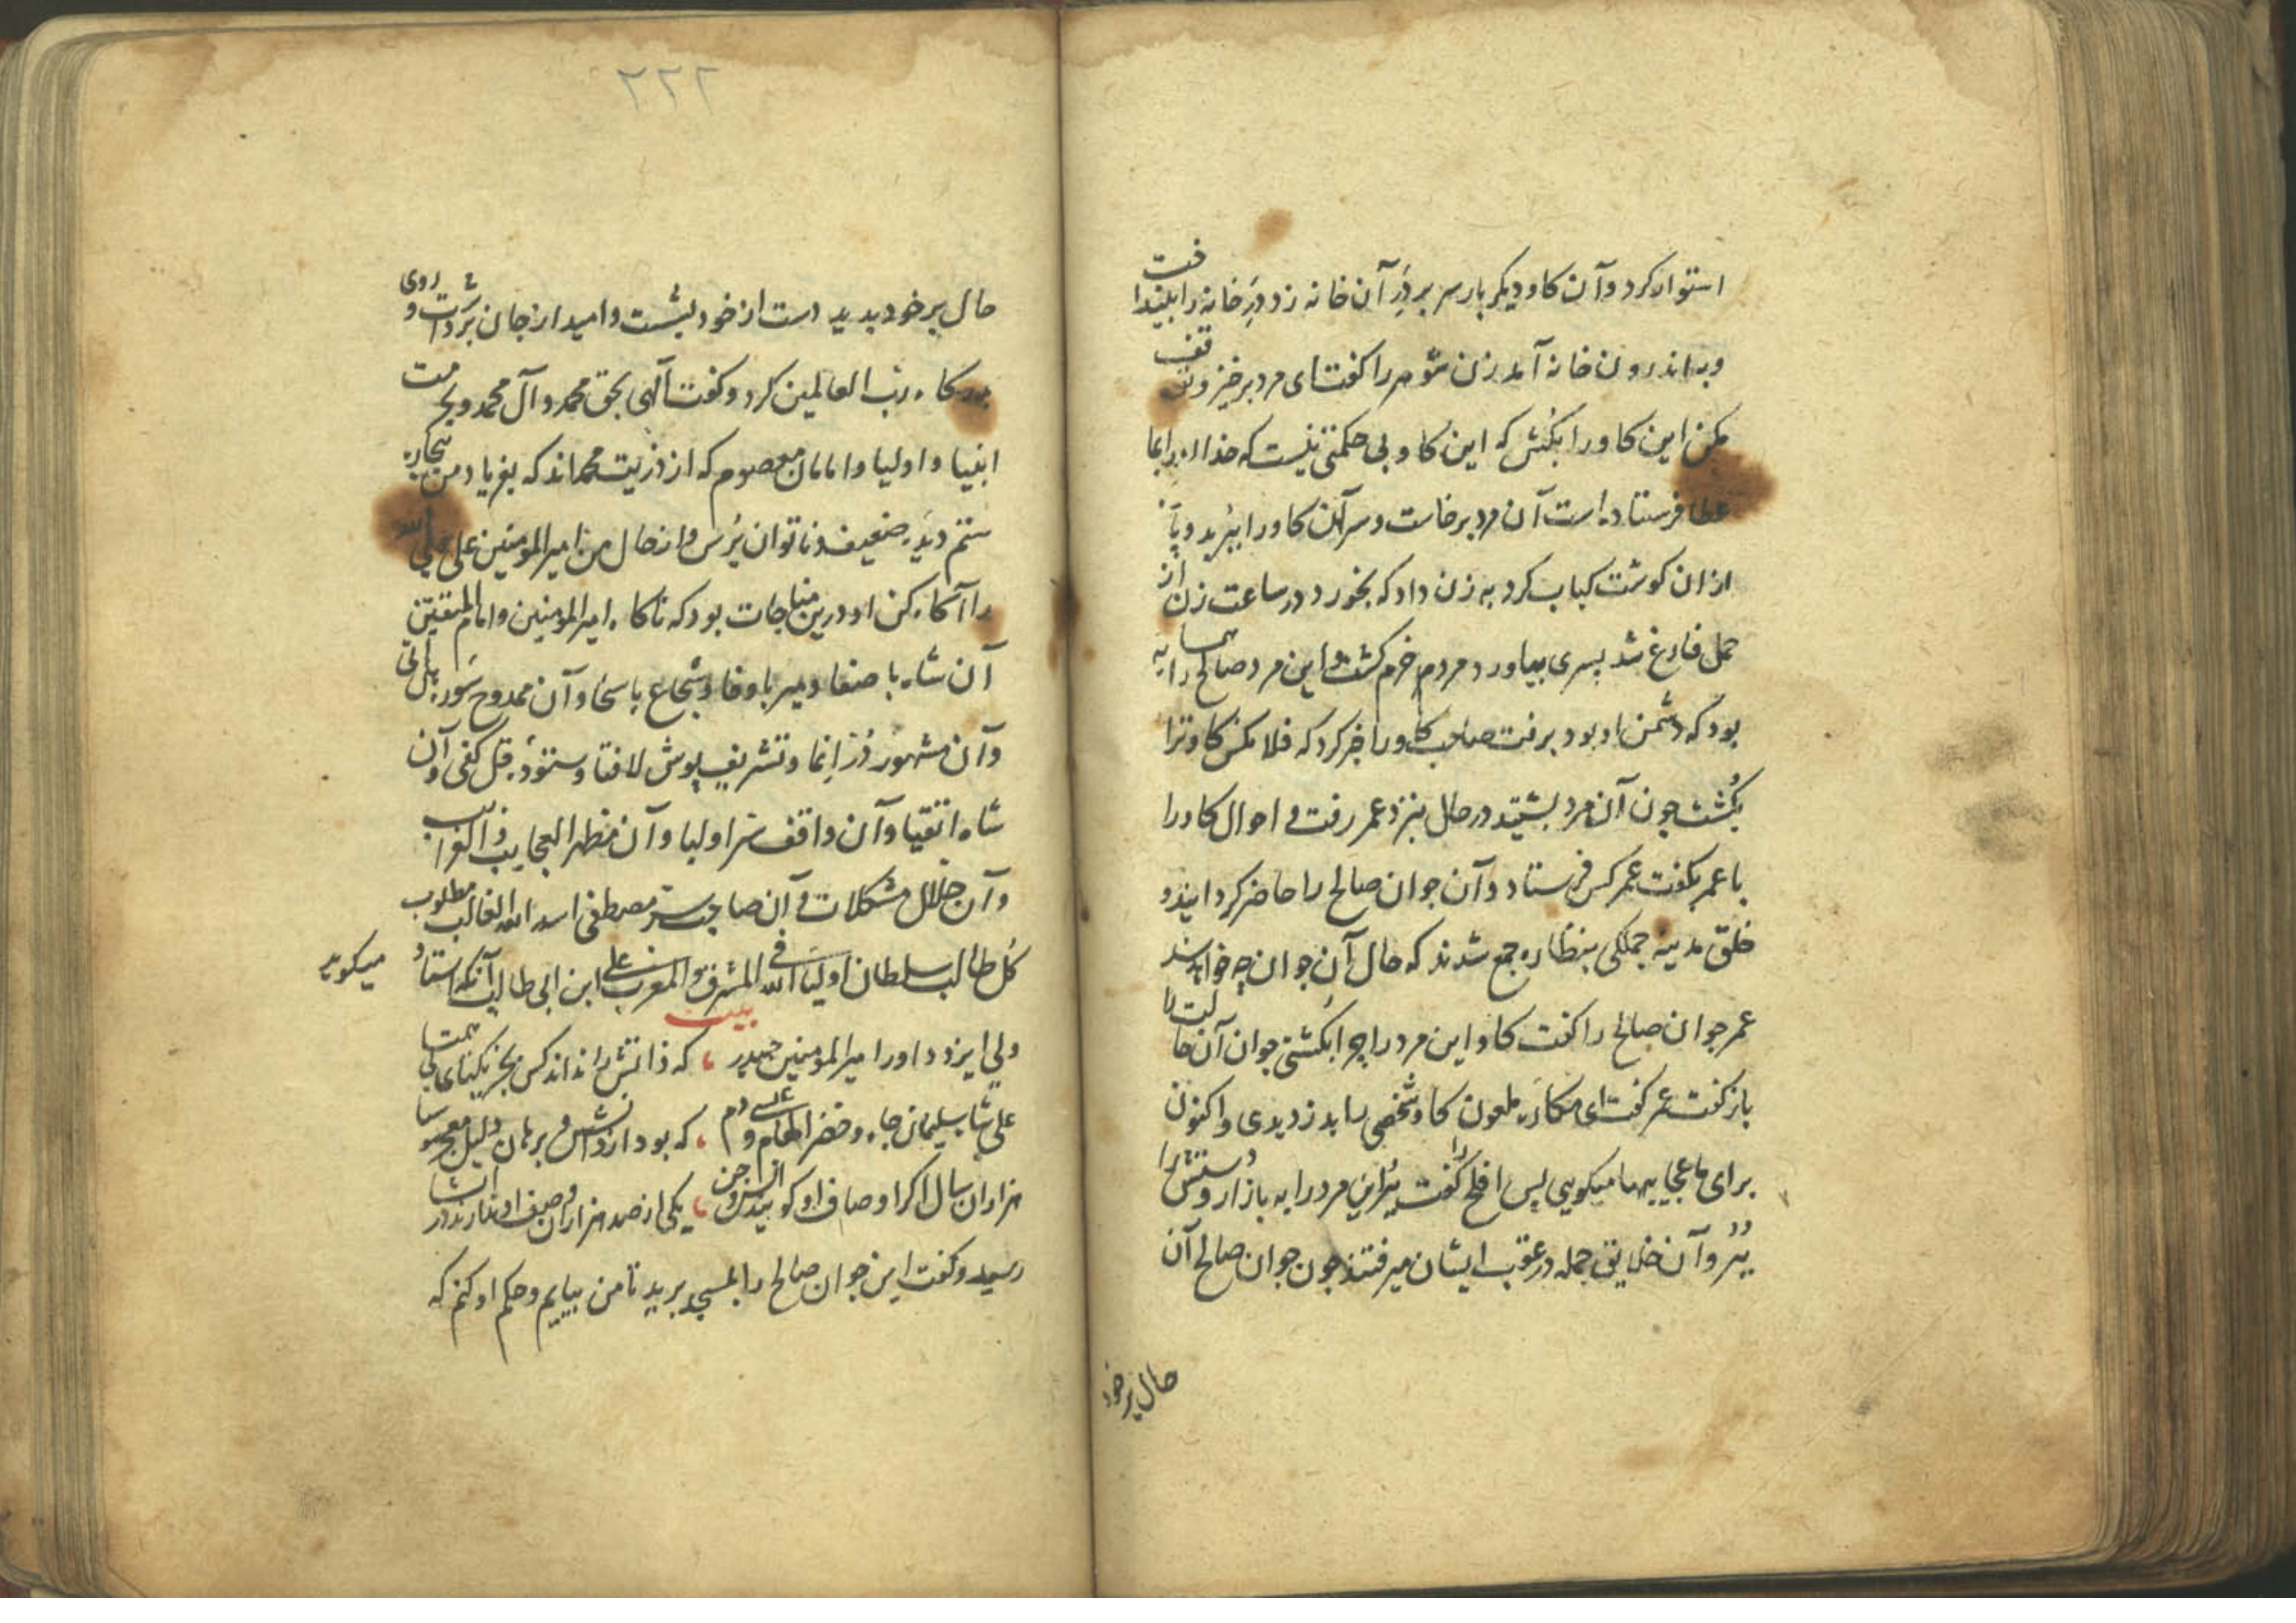 استوار کرد و آن کاو دیکر بار سر بر در آن خانه زد در خانه را بلینداخت
و به اندرون خانه آمد زن شوهر را کفت ای مرد برخیز و توقف
مکن این کاو را بکش که این کاو بی حکمتی نیست که خدا برای ما
عطا فرستاده است آن مرد برخاست و سر آن کاو را ببرید و پاره
از ان کوشت کباب کرد به زن داد که بخورد در ساعت زن از
حمل فارغ شد پسری بیاورد مردم خرم کشت و این مرد صالح را همسایه
بود که دشمن او بود برفت صاحب کاو را خبر کرد که فلا مکس کاو ترا
بکشت جون آن مرد بشنید در حال بنزد عمر رفت و احوال کاو را
با عمر بکفت عمر کس فرستاد و آن جوان صالح را حاضر کردانیند و
خلق مدینه جملکی بنظاره جمع شدند که حال آن جوان چه خواهد شد
عمر جوان صالح را کفت کاو این مرد را چرا بکشتی جوان آن حالت را
باز کفت عمر کفت ای مکاره ملعون کاو شخصی را بدزدیدی و اکنون
برای ما عجایبها میکویی پس افلح را کفت ببر این مرد را به بازار و دستش را
ببر و آن خلایق جمله در عقب ایشان میرفتند جون جوان صالح آن
حال بر خود
۲۲۲
حال بر خود بدید دست از خود بشست و امید از جان برداشت و روی
بدرکاه رب العالمین کرد و کفت آلهی بحق محمد و آل محمد و بحرمت
انبیا و اولیا و امامان معصوم که از ذریت محمداند که بفریاد من بیچاره
ستم دیده ضعیف و ناتوان برس و از حال من امیر المومنین علی ولی الله
را آکاه کن او درین مناجات بود که ناکاه امیر المومنین و امام المتقین
آن شاه با صفا و میر با وفا و شجاع با سخا و آن ممدوح سوره هل اتی
و آن مشهور در انما و تشریف پوش لافتا و ستوده قل کفی و آن
شاه اتقیا و آن واقف سر اولیا و آن مظهر العجایب و الغرایب
و آن حلال مشکلات و آن صاحب سر مصطفی اسد الله الغالب مطلوب
کل طالب سلطان اولیاء الله فی المشرق و المغرب علی ابن ابی طالب آنکه استاد میکوید
بیت
ولی ایزد داور امیر المومنین حیدر ، که ذاتش را نداند کس بجز یکتای بی همتا
علی شاه سلیمان جاه و خضر الهام و عیسی دم ، که بود از دانش و برهان دلیل معجر موسا
هزاران سال اکر اوصاف او کویند انس و جن ، یکی از صد هزاران وصف او نارند در انشا
رسید و کفت این جوان صالح را بمسجد برید تا من بیایم و حکم او کنم که